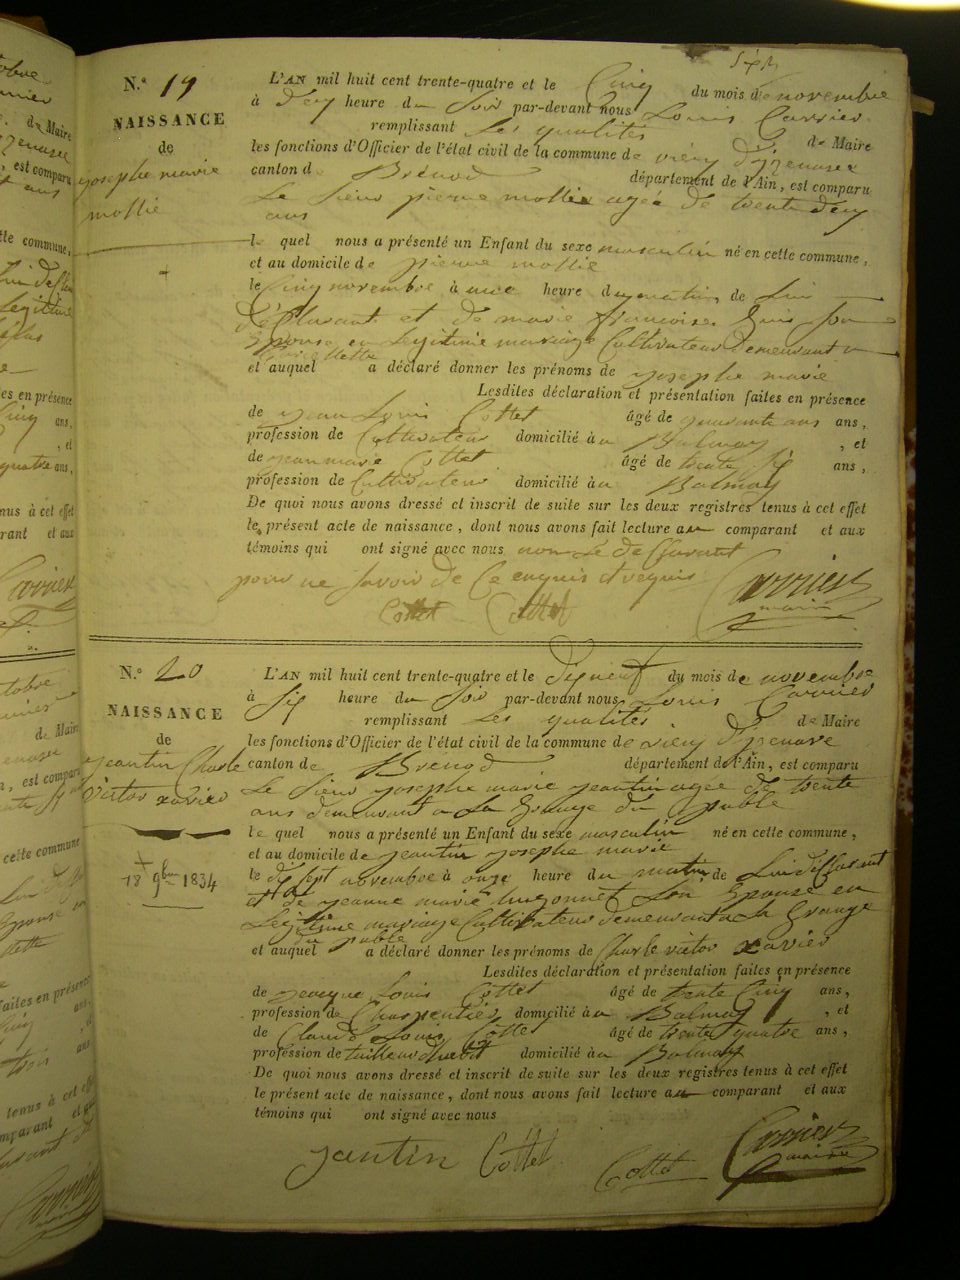 N.° 19
NAISSANCE
de
josephe marie
mollie
L'AN mil huit cent trente-quatre et le Cinq du mois de novembre
à deux heure du Soir par-devant nous Louis Carrier
remplissant Les qualités de Maire
les fonctions d'Officier de l'état civil de la commune de vieux d'izenave
canton de Brénod département de l'Ain, est comparu
Le Sieur pierre mollie agée de trente deux
ans
le quel nous a présenté un Enfant du sexe masculin né en cette commune,
et au domicile de pierre mollie
le Cinq novembre à heure du matin, de Lui
déClarant et de marie françoise Son
Epouse en Legitime mariage Cultivateur demeurant
et auquel a déclaré donner les prénoms de josephe marie
Lesdites déclaration et présentation faites en présence
de jean Louis Cottet âgé de quarante ans ans,
profession de Cultivateur domicilié à Balmay, et
de jean marie Cottet âgé de trente six ans,
profession de Cultivateur domicilié à Balmay
De quoi nous avons dressé et inscrit de suite sur les deux registres tenus à cet effet
le présent acte de naissance, dont nous avons fait lecture au comparant et aux
témoins qui ont signé avec nous non Le déClarant
pour ne Savoir de Ce enquis et requis
Cottet Cottet Carrier
maire
N.° 20
NAISSANCE
de
jeantin Charle
victor xavier
18 9bre 1834
L'AN mil huit cent trente-quatre et le dixneuf du mois de novembre
à Six heure du Soir par-devant nous Louis Carrier
remplissant Les qualités de Maire
les fonctions d'Officier de l'état civil de la commune de vieux d'izenave
canton de Brénod département de l'Ain, est comparu
Le Sieur josephe marie jeantin agée de trente
ans demeurant a La Grange du pable
le quel nous a présenté un Enfant du sexe masculin né en cette commune,
et au domicile de jeantin josephe marie
le novembre à onze heure du matin, de Lui déClarant
et de jeanne marie hugonnet Son Epouse en
Legitime mariage Cultivateur demeurant a La Grange
du pable
et auquel a déclaré donner les prénoms de Charle victor xavier
Lesdites déclaration et présentation faites en présence
de jacque Louis Cottet âgé de trente Cinq ans,
profession de Charpentier domicilié à Balmay, et
de Claude Louis Cottet âgé de trente quatre ans,
profession de tailleur d'habit domicilié à Balmay
De quoi nous avons dressé et inscrit de suite sur les deux registres tenus à cet effet
le présent acte de naissance, dont nous avons fait lecture au comparant et aux
témoins qui ont signé avec nous
jantin Cottet Cottet Carrier
maire